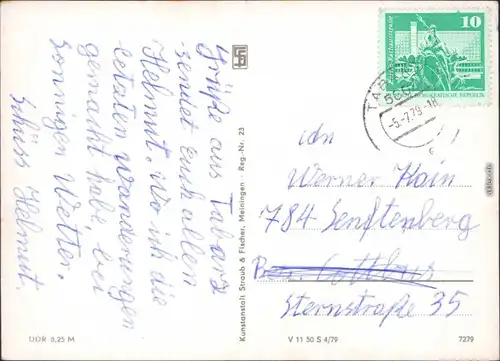 Grüße aus Tabarz
sendet euch allen
Helmut. Wo ich die
letzten Wanderungen
gemacht habe, bei
sonnigen Wetter.
Tschüss Helmut.
Kunstanstalt Straub & Fischer, Meiningen Reg.-Nr. 23
DDR 0,25 M
V 11 50 S 4/79
7279
10
DEMOKRATISCHE REPUBLIK
TABARZ
-5.-7.79-18
An
Werner Hain
784 Senftenberg
Bez. Cottbus
Sternstraße 35